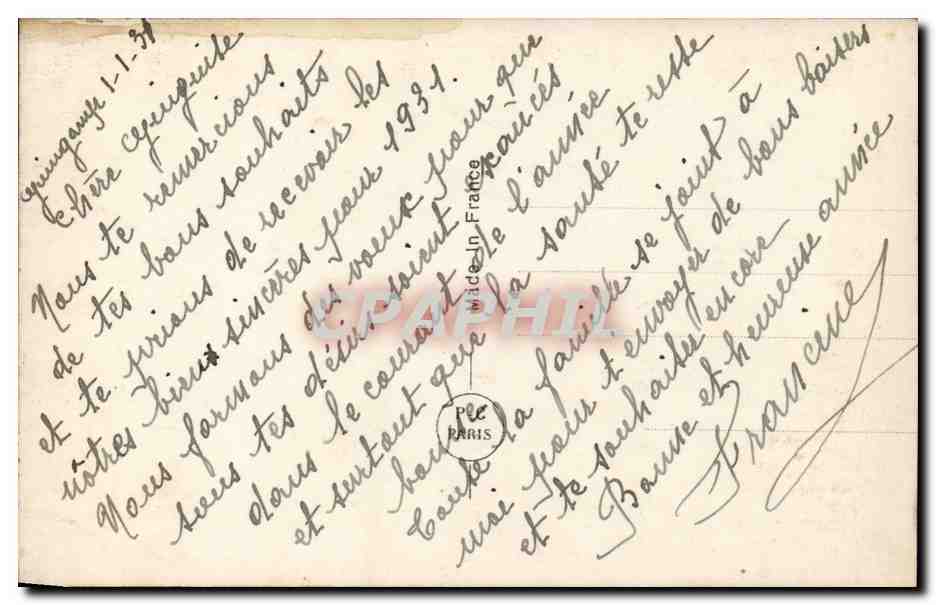 Guingamp 1-1-31
Chère
Nous te remercions
de tes bons souhaits
et te prions de recevoir les
nôtres bien sincères pour 1931.
Nous formons des voeux pour que
tous tes désirs soient exaucés
dans le courant de l'année
et surtout que la santé te reste
bonne
Toute la famille se joint à
moi pour t'envoyer de bons baisers
et te souhaiter encore
Bonne et heureuse année
Francine
Made in France
P C
PARIS
CPAPHIL